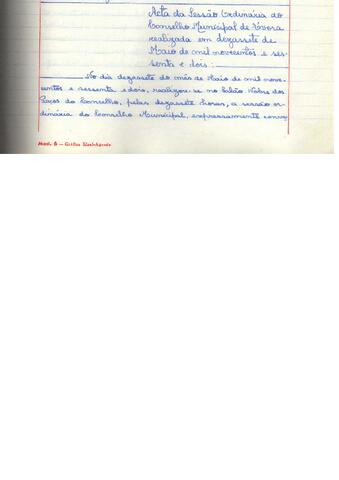 Acta da Sessão Ordinária do
Conselho Municipal de Évora
realizada em dezassete de
Maio de mil novecentos e ses-
senta e dois:
No dia dezassete do mês de Maio de mil nove-
centos e sessenta e dois, realizou-se no Salão Nobre dos
Paços do Concelho, pelas dezassete horas, a sessão or-
dinária do Conselho Municipal, expressamente convo-
Mod. 6 — Gráfica